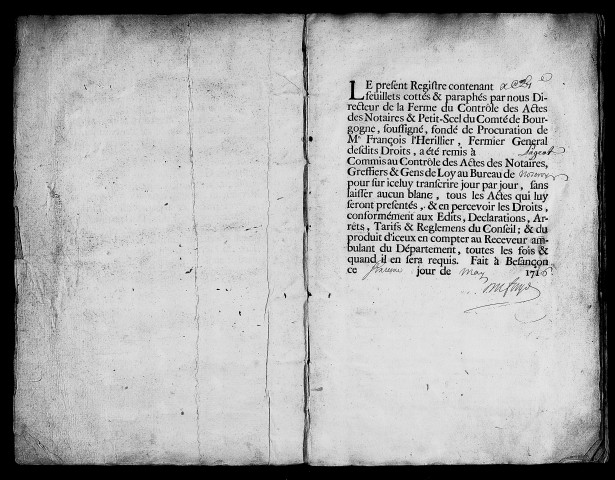 LE present Registre contenant
feuillets cottés & paraphés par nous Di-
recteur de la Ferme du Contrôle des Actes
des Notaires & Petit-Scel du Comté de Bour-
gogne, soussigné, fondé de Procuration de
Me François l'Herillier, Fermier General
desdits Droits, a été remis à
Commis au Contrôle des Actes des Notaires,
Greffiers & Gens de Loy au Bureau de
pour sur iceluy transcrire jour par jour, sans
laisser aucun blanc, tous les Actes qui luy
seront presentés, & en percevoir les Droits,
conformément aux Edits, Declarations, Ar-
rêts, Tarifs & Reglemens du Conseil; & du
produit d'iceux en compter au Receveur am-
bulant du Département, toutes les fois &
quand il en sera requis. Fait à Besançon
ce jour de May 1716